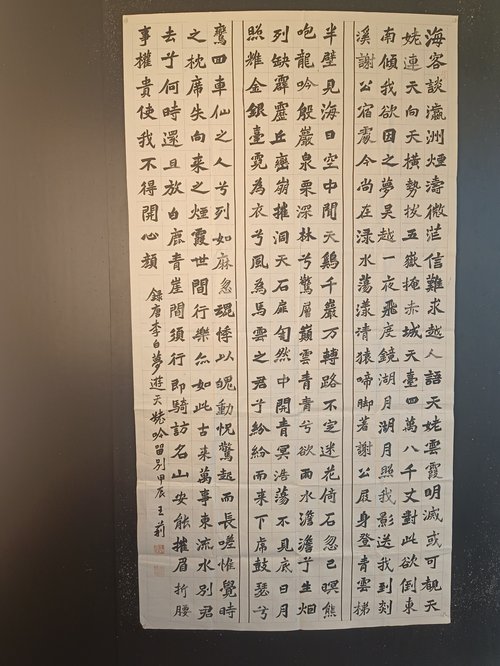 海客談瀛洲煙濤微茫信難求越人語天姥雲霞明滅或可覩天
姥連天向天橫勢拔五嶽掩赤城天臺四萬八千丈對此欲倒東
南傾我欲因之夢吳越一夜飛度鏡湖月湖月照我影送我到剡
溪謝公宿處今尚在淥水蕩漾清猿啼脚著謝公屐身登青雲梯
半壁見海日空中聞天鷄千巖万轉路不定迷花倚石忽已暝熊
咆龍吟殷巖泉栗深林兮驚層巔雲青青兮欲雨水澹澹兮生烟
列缺霹靂丘巒崩摧洞天石扉訇然中開青冥浩蕩不見底日月
照耀金銀臺霓為衣兮風為馬雲之君兮紛紛而來下虎鼓瑟兮
鸞回車仙之人兮列如麻忽魂悸以魄動怳驚起而長嗟惟覺時
之枕席失向來之煙霞世間行樂亦如此古來萬事東流水別君
去兮何時還且放白鹿青崖間須行即騎訪名山安能摧眉折腰
事權貴使我不得開心顏
錄唐李白夢遊天姥吟留別甲辰王莉